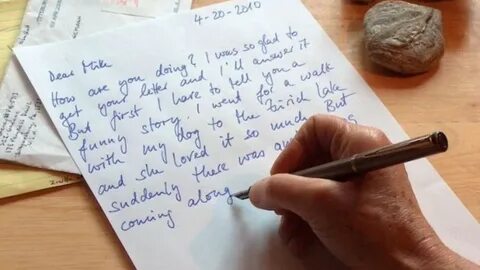 4-20-2010
Dear Mike
How are you doing? I was so glad to
get your letter and I'll answer it
But first I have to tell you a
funny story. I went for a walk
with my dog to the Zürich Lake
and she loved it so much. But
suddenly there was
coming along